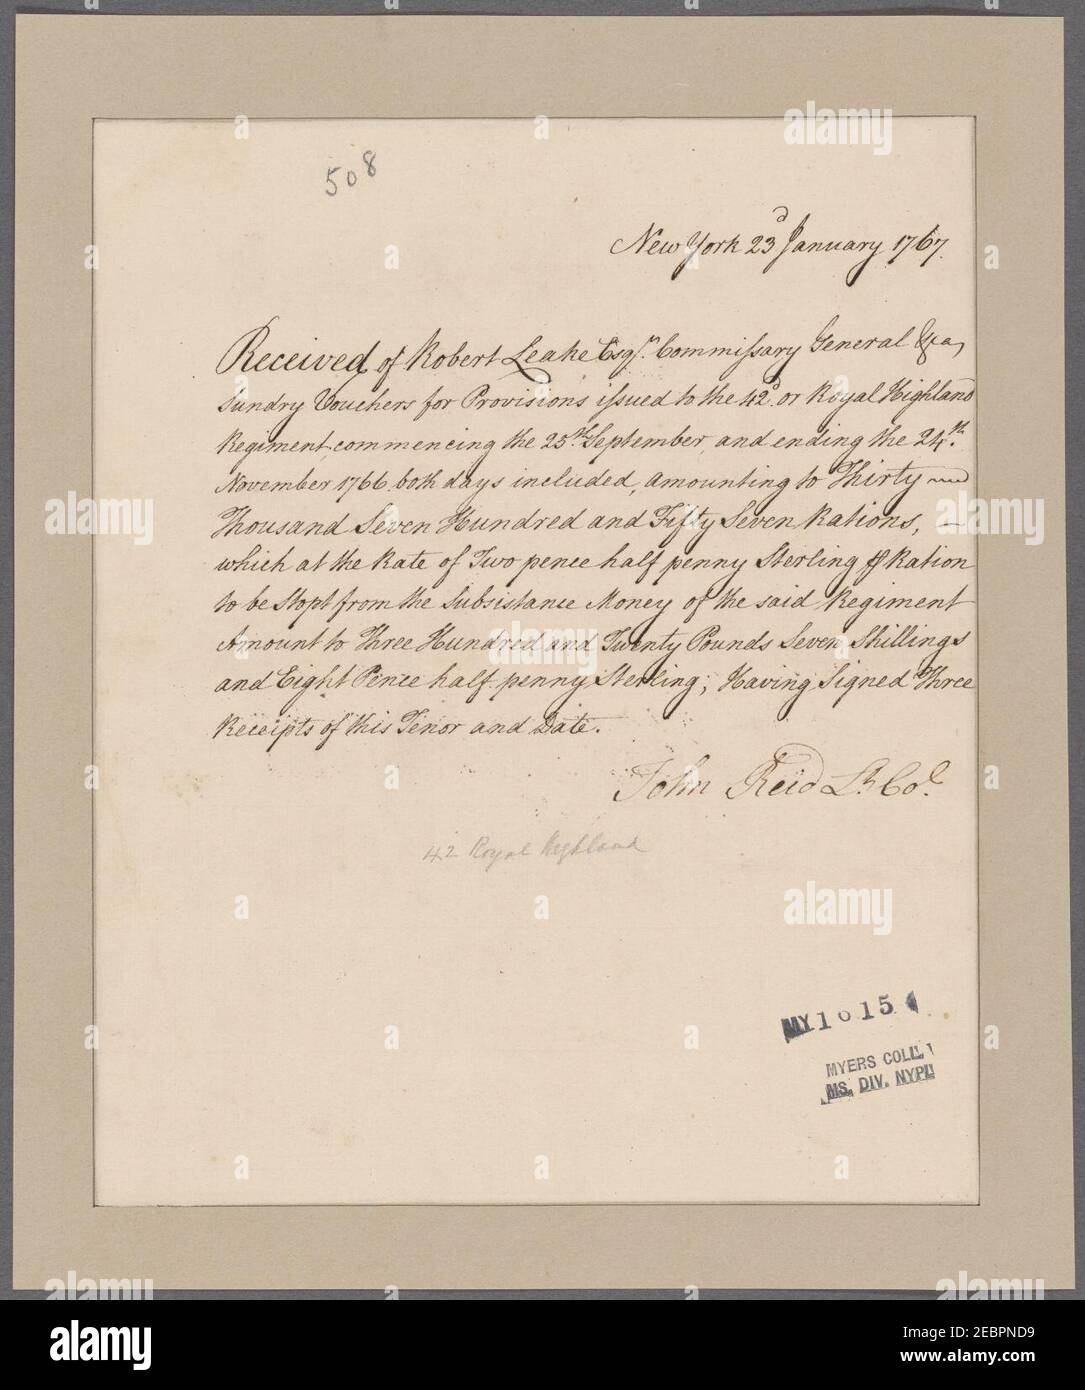 508
New York 23d January 1767.
Received of Robert Leake Esqr. Commissary General &ca,
Sundry Vouchers for Provisions issued to the 42d. or Royal Highland
Regiment, commencing the 25th. September, and ending the 24th.
November 1766. both days included, amounting to Thirty
Thousand Seven Hundred and Fifty Seven Rations, –
which at the Rate of Two pence half penny Sterling ⅌ Ration
to be Stopt from the Subsistance Money of the said Regiment
Amount to Three Hundred and Twenty Pounds Seven Shillings
and Eight Pence half penny Sterling; Having Signed Three
Receipts of this Tenor and Date.
John Reid Lt. Col.
42 Royal Highland
MY 1615
MYERS COLL.
MS. DIV. NYPL
alamy
Image ID: 2EBPND9
www.alamy.com